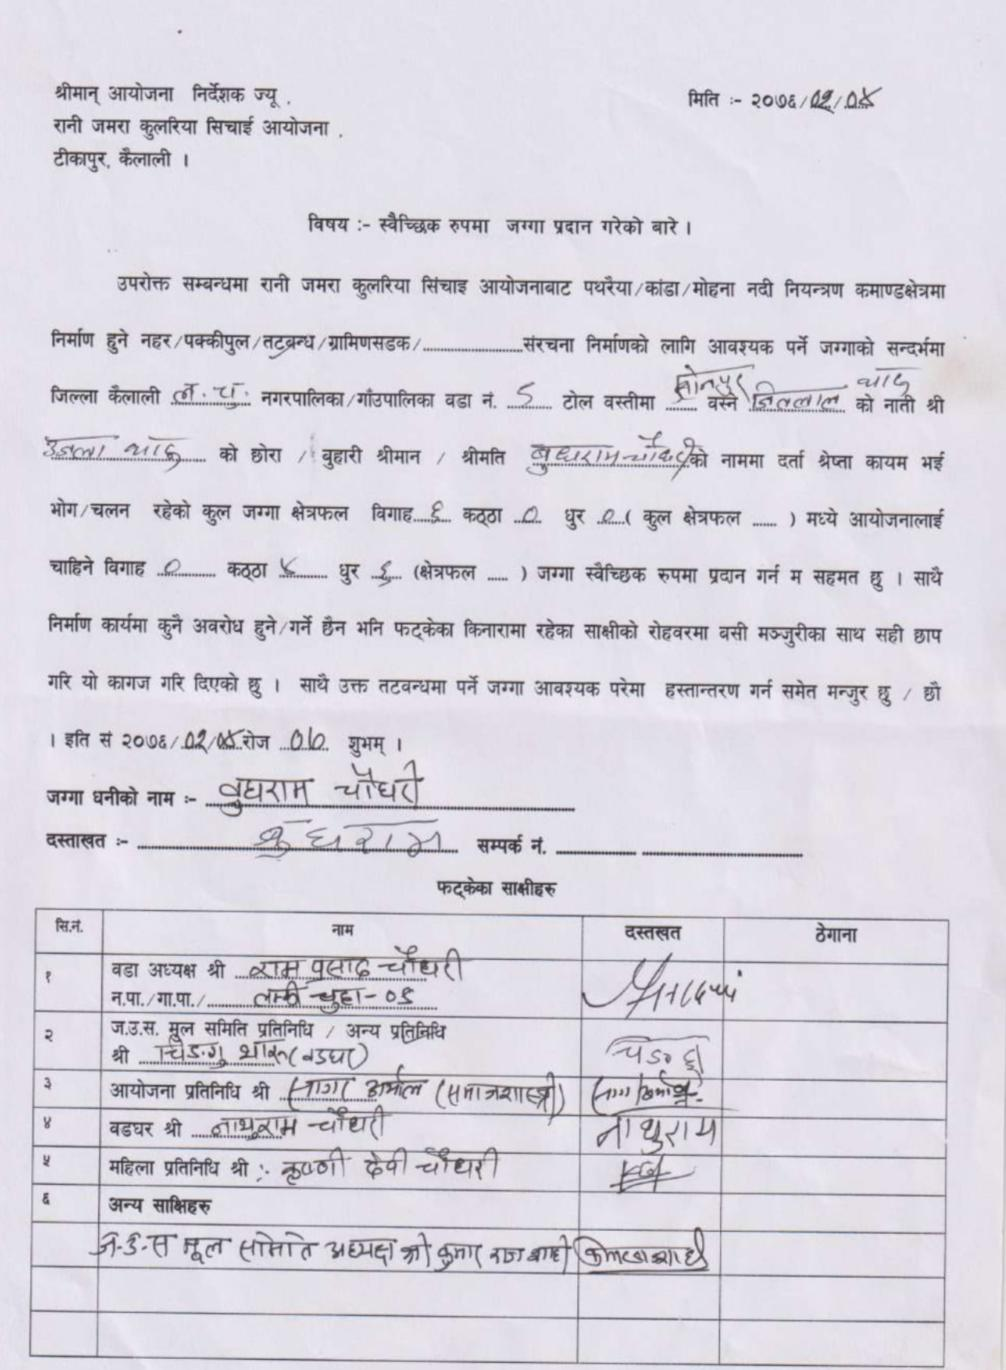 श्रीमान् आयोजना निर्देशक ज्यू .
मिति :- २०७६/०२/०४
रानी जमरा कुलरिया सिचाई आयोजना .
टीकापुर, कैलाली ।
विषय :- स्वैच्छिक रुपमा जग्गा प्रदान गरेको बारे ।
उपरोक्त सम्बन्धमा रानी जमरा कुलरिया सिंचाइ आयोजनाबाट पथरैया/कांडा/मोहना नदी नियन्त्रण कमाण्डक्षेत्रमा
निर्माण हुने नहर/पक्कीपुल/तटबन्ध/ग्रामिणसडक/........................संरचना निर्माणको लागि आवश्यक पर्ने जग्गाको सन्दर्भमा
जिल्ला कैलाली ल.चु. नगरपालिका/गाँउपालिका वडा नं. ५ टोल वस्तीमा वस्ने को नाती श्री
को छोरा / बुहारी श्रीमान / श्रीमति बुधराम चौधरी को नाममा दर्ता श्रेष्ता कायम भई
भोग/चलन रहेको कुल जग्गा क्षेत्रफल विगाह ६ कठ्ठा ० धुर ० ( कुल क्षेत्रफल ...... ) मध्ये आयोजनालाई
चाहिने विगाह ० कठ्ठा ४ धुर ६ (क्षेत्रफल ..... ) जग्गा स्वैच्छिक रुपमा प्रदान गर्न म सहमत छु । साथै
निर्माण कार्यमा कुनै अवरोध हुने/गर्ने छैन भनि फट्केका किनारामा रहेका साक्षीको रोहवरमा बसी मञ्जुरीका साथ सही छाप
गरि यो कागज गरि दिएको छु । साथै उक्त तटवन्धमा पर्ने जग्गा आवश्यक परेमा हस्तान्तरण गर्न समेत मन्जुर छु / छौ
। इति सं २०७६/०२/०४ रोज शुभम् ।
जग्गा धनीको नाम :- बुधराम चौधरी
दस्ताखत :- बुधराम सम्पर्क नं. .................. ....................................
फट्केका साक्षीहरु
सि.नं. नाम दस्तखत ठेगाना
१ वडा अध्यक्ष श्री राम प्रसाद चौधरी
न.पा./गा.पा./ लम्की चुहा-०५
२ ज.उ.स. मुल समिति प्रतिनिधि / अन्य प्रतिनिधि
श्री (वडघर)
३ आयोजना प्रतिनिधि श्री (समाजशास्त्री)
४ वडघर श्री नाथुराम चौधरी नाथुराम
५ महिला प्रतिनिधि श्री :. कृष्णी देवी चौधरी
६ अन्य साक्षिहरु
ज.उ.स मूल समिति अध्यक्ष श्री कुमार राज शाही